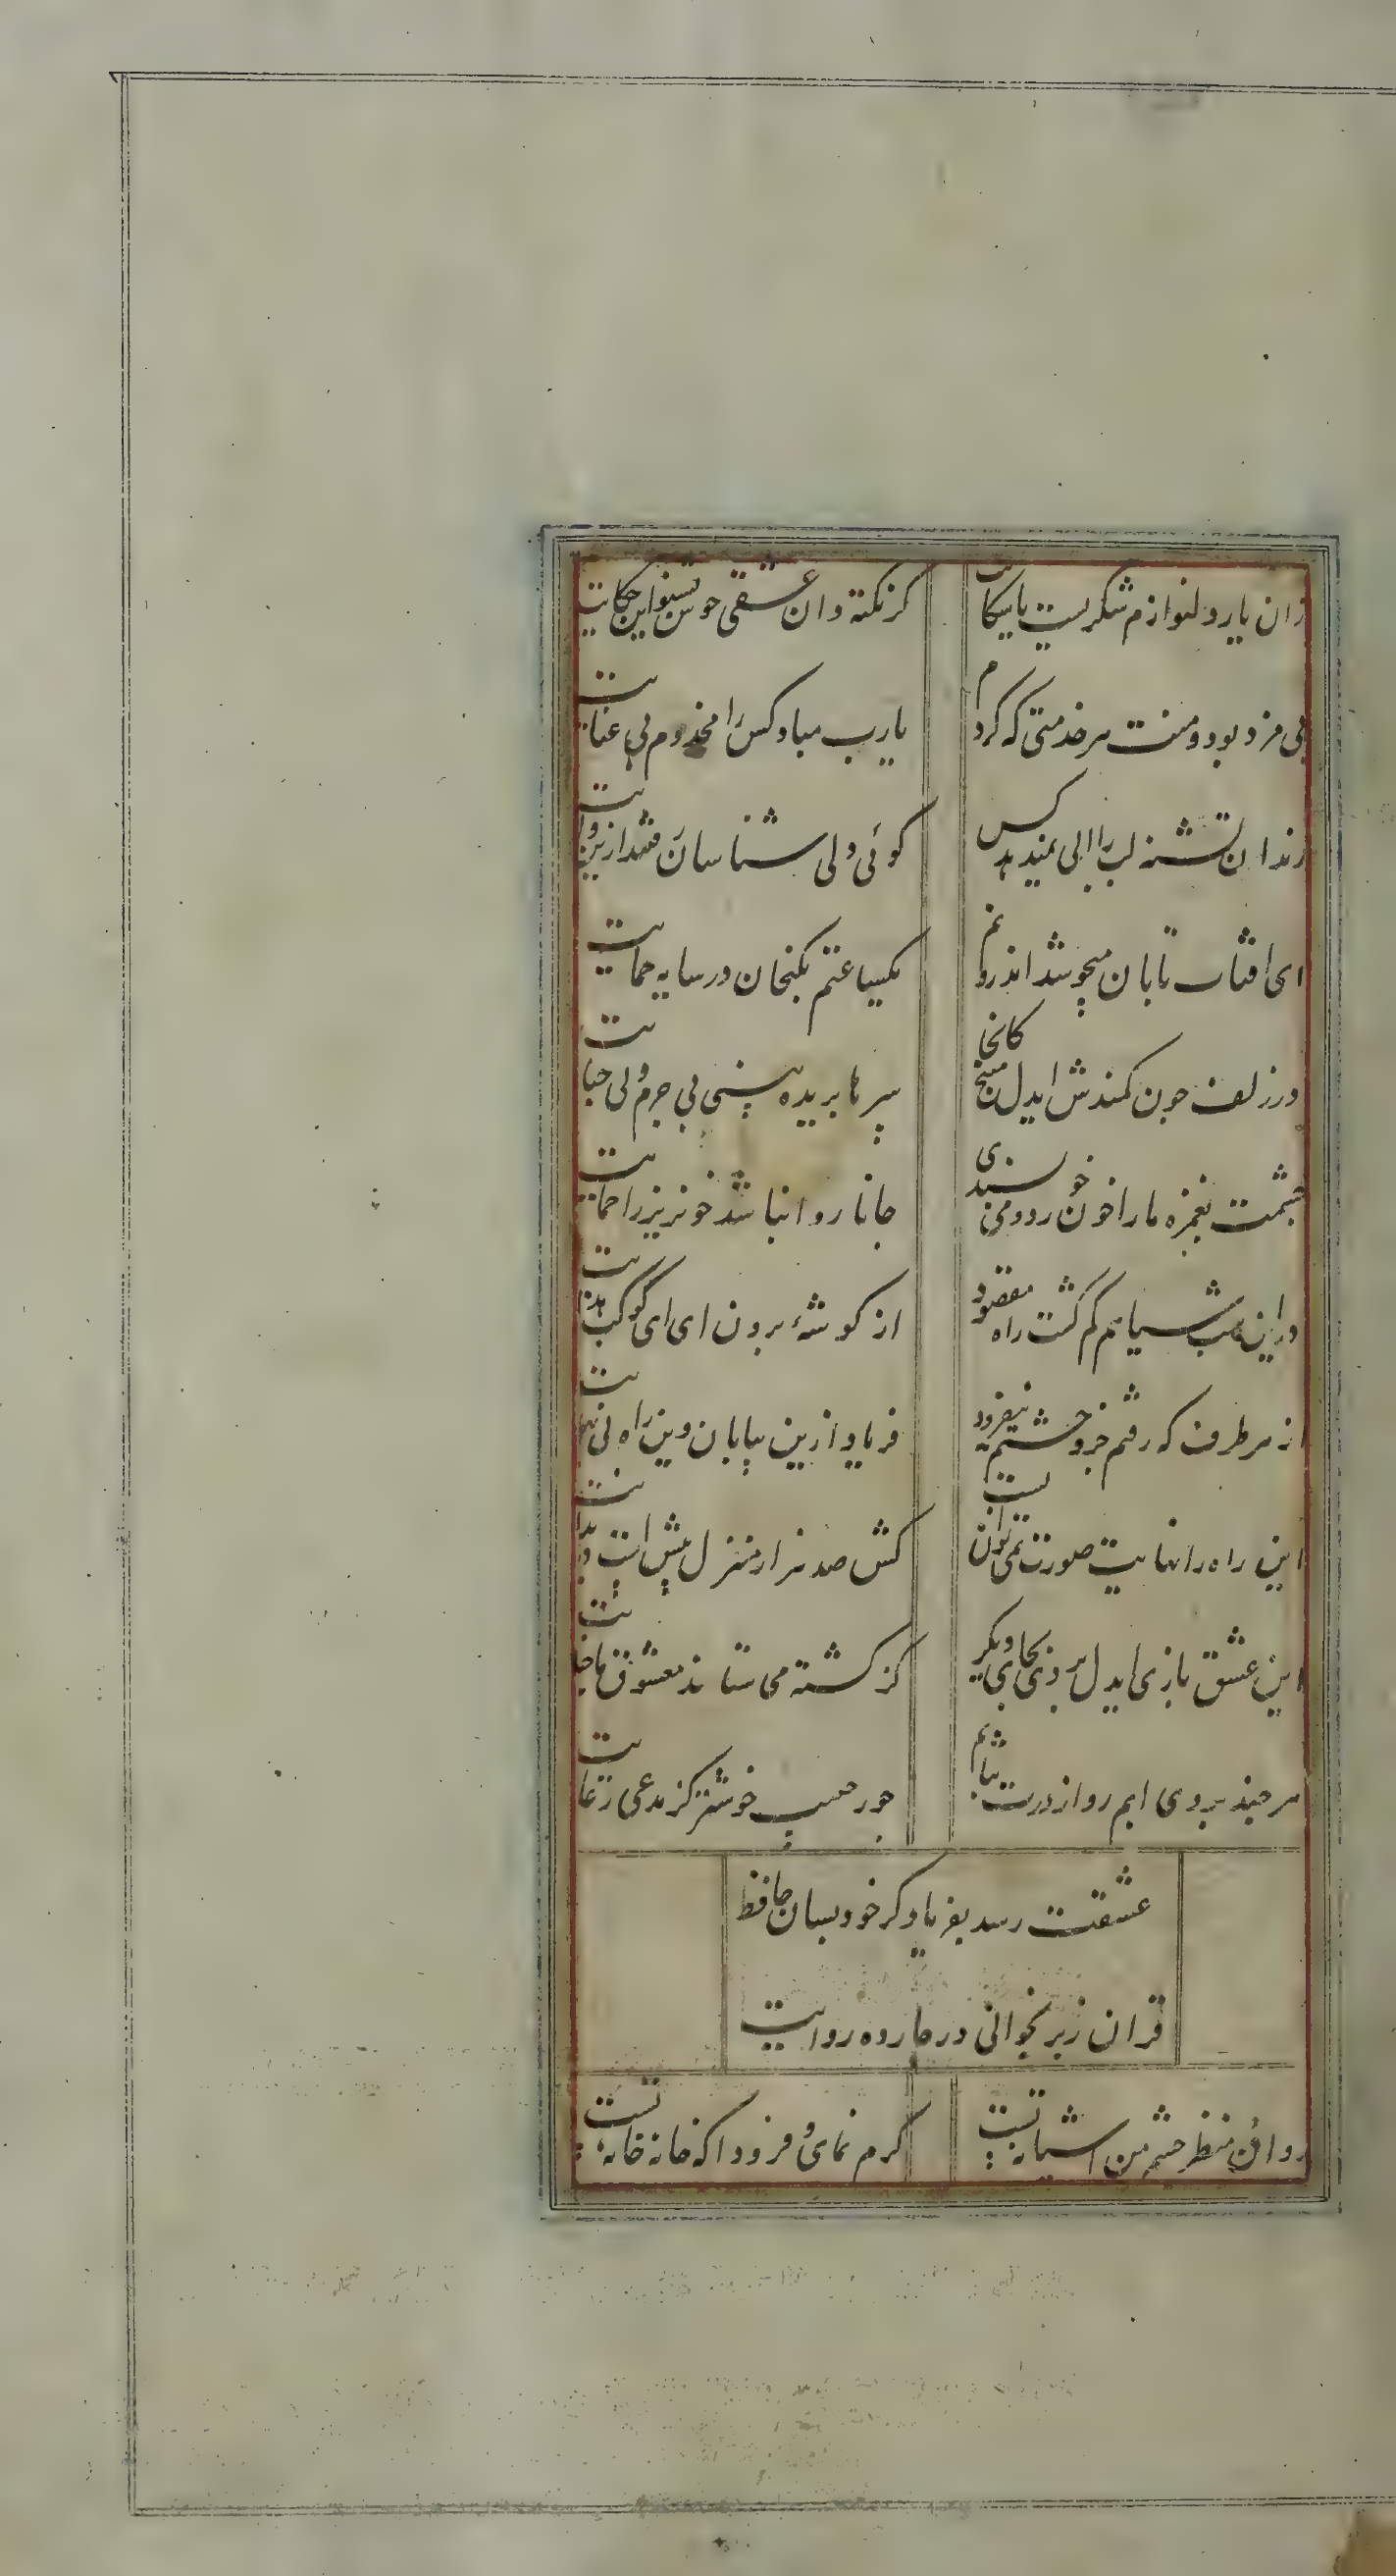 زان یار دلنوازم شکریست باشکایت گر نکته دان عشقی خوش بشنو این حکایت
بی مزد بود و منت هر خدمتی که کردم یارب مباد کس را مخدوم بی عنایت
رندان تشنه لب را ابی نمیدهد کس کوئی ولی شناسان رفتند ازین ولایت
ای افتاب تابان میجوشد اندرونم یکساعتم بکنجان در سایه حمایت
در زلف چون کمندش ایدل مپیچ کانجا سرها بریده بینی بی جرم و بی جنایت
چشمت بغمزه ما را خون خورد و می پسندی جانا روا نباشد خونریز را حمایت
در این شب سیاهم گم گشت راه مقصود از گوشهٔ برون ای ای کوکب هدایت
از هر طرف که رفتم جز وحشتم نیفزود فریاد ازین بیابان وین راه بی نهایت
این راه را نهایت صورت نمی توان بست کش صد هزار منزل پیش است در بدایت
این عشق بازی ایدل بر دی بجای دیگر کز کشته می ستاند معشوق ما
هر چند بروی ابم رو از درت نتابم جور حبیب خوشتر کز مدعی رعایت
عشقت رسد بفریاد گر خود بسان حافظ
قران زبر بخوانی در چارده روایت
رواق منظر چشم من اشیانه تست کرم نمای و فرود ا که خانه خانه تست